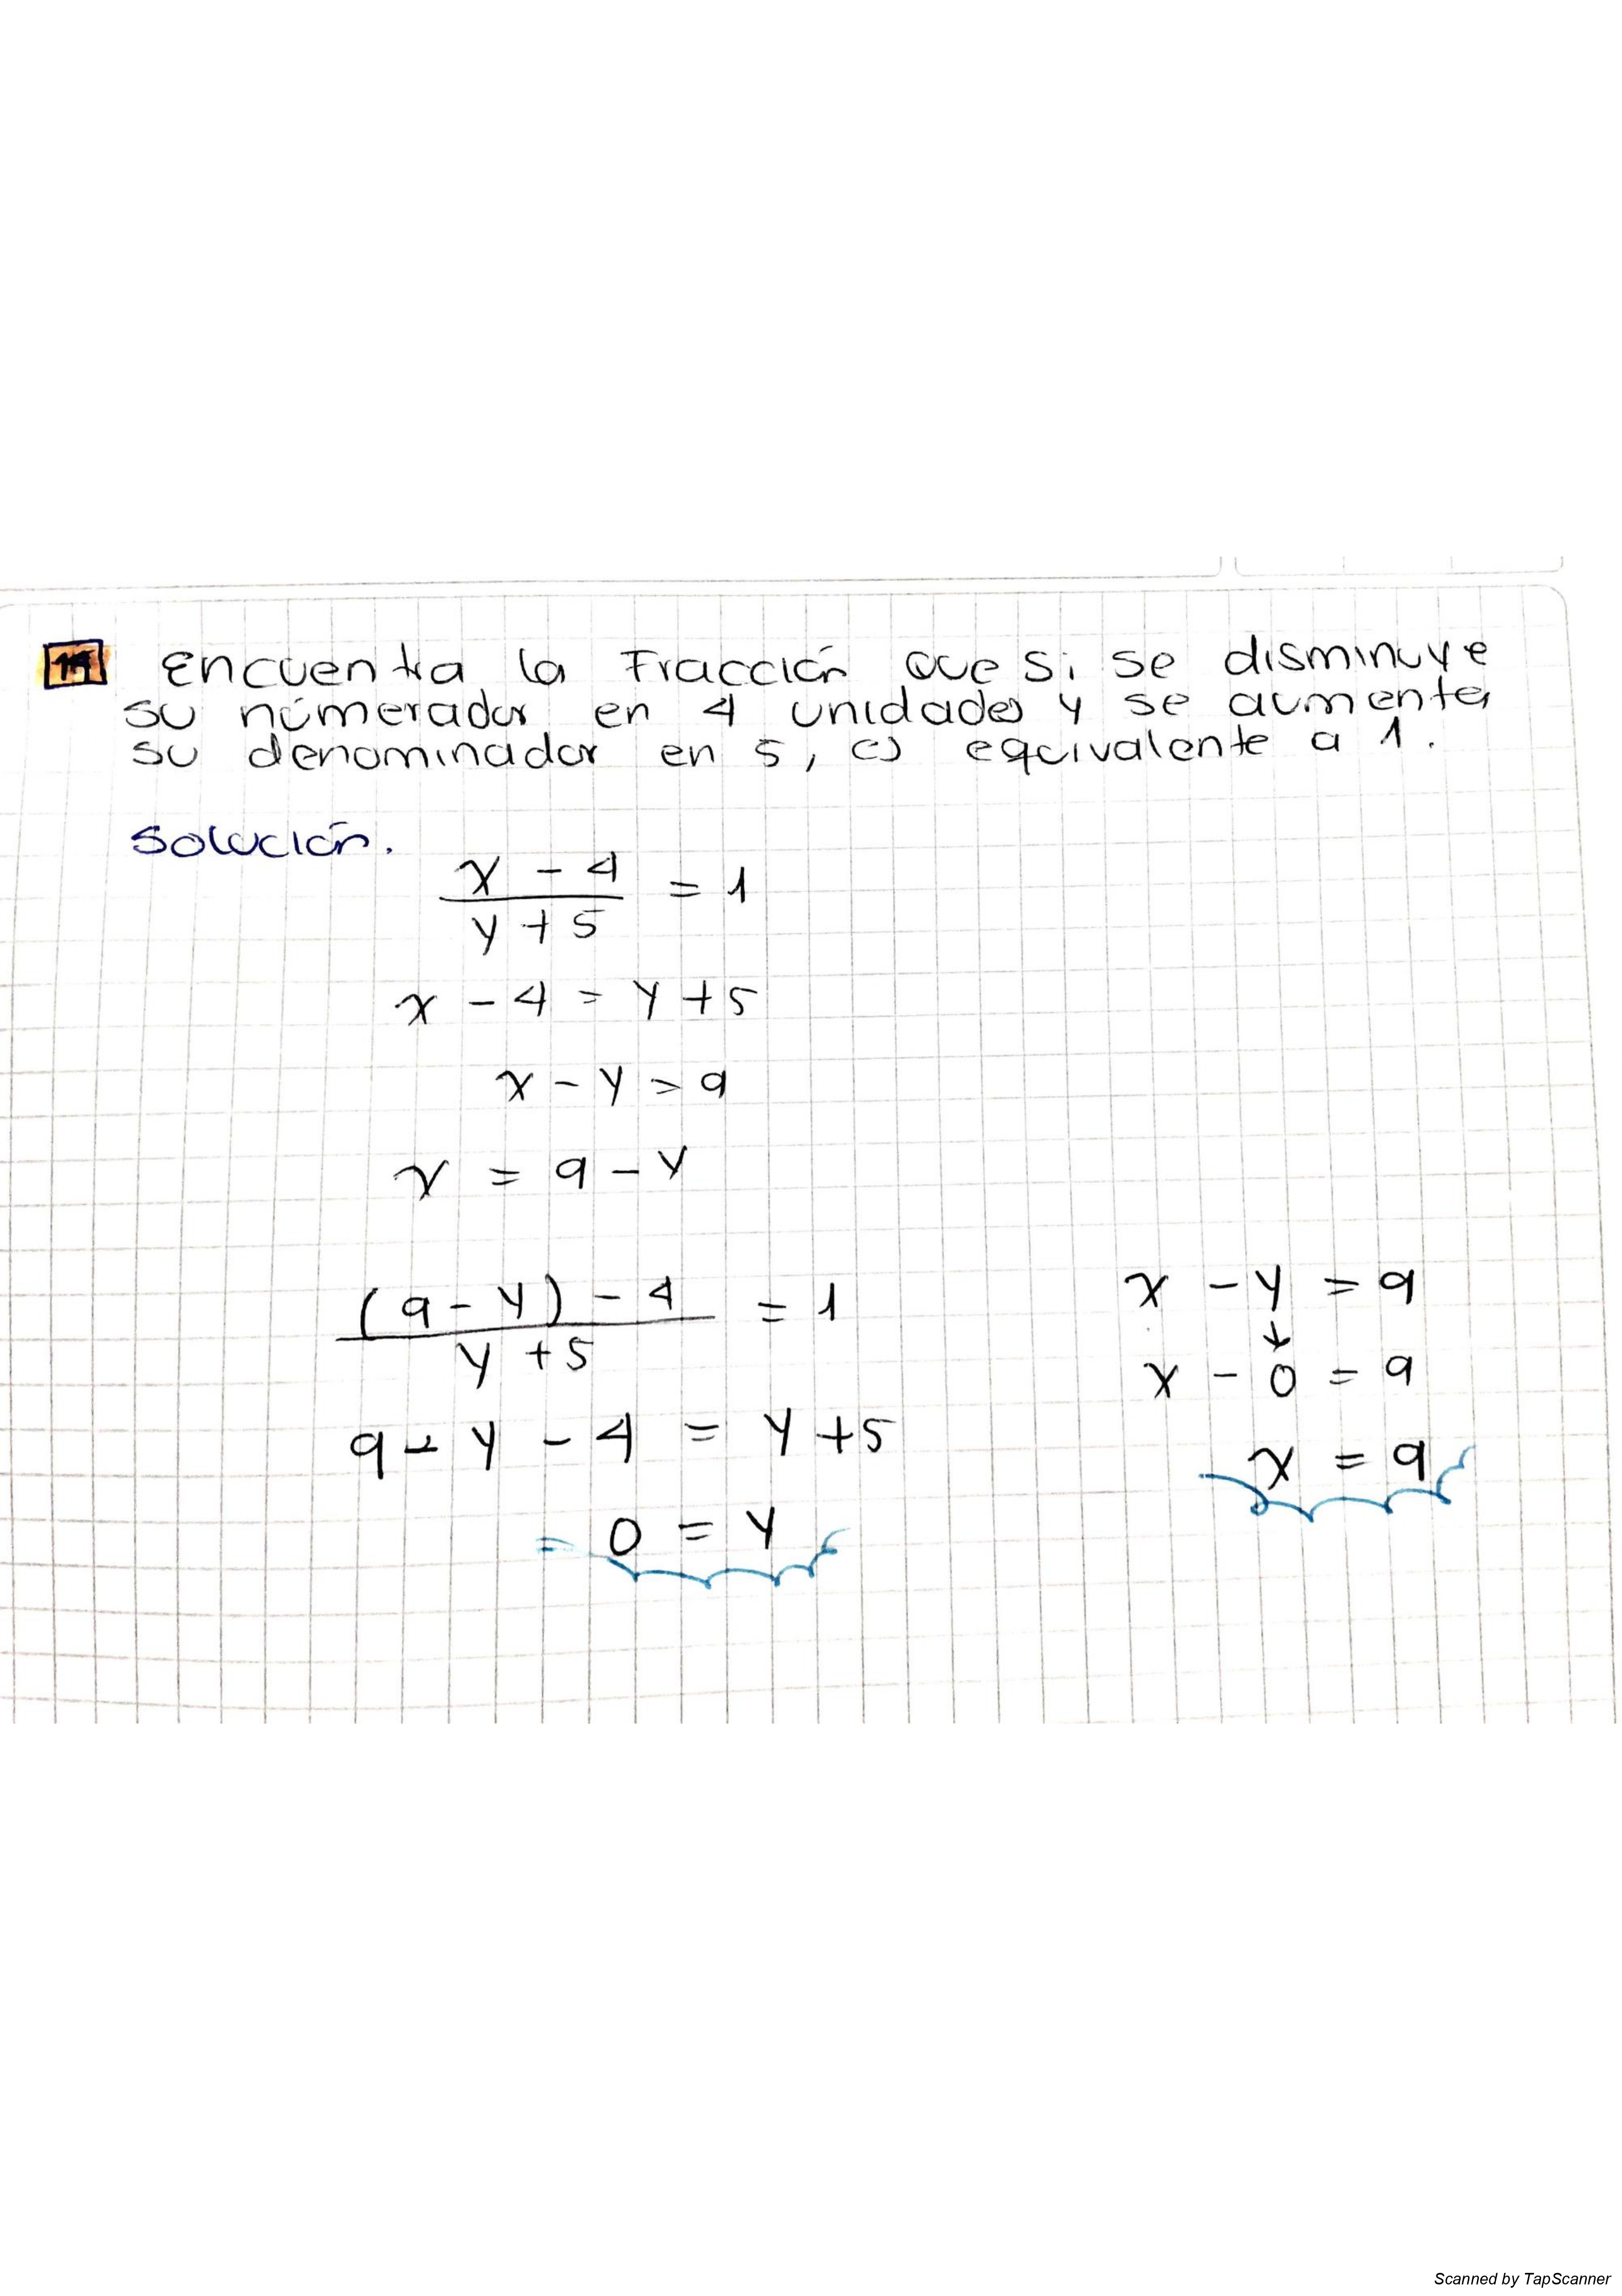 15 Encuentra la Fracción que si se disminuye
su númerador en 4 unidades y se aumenta
su denominador en 5, es equivalente a 1.
Solución.
x - 4 / y + 5 = 1
x - 4 = y + 5
x - y = 9
x = 9 - y
(9 - y) - 4 / y + 5 = 1
9 - y - 4 = y + 5
= 0 = y
x - y = 9
x - 0 = 9
x = 9
Scanned by TapScanner